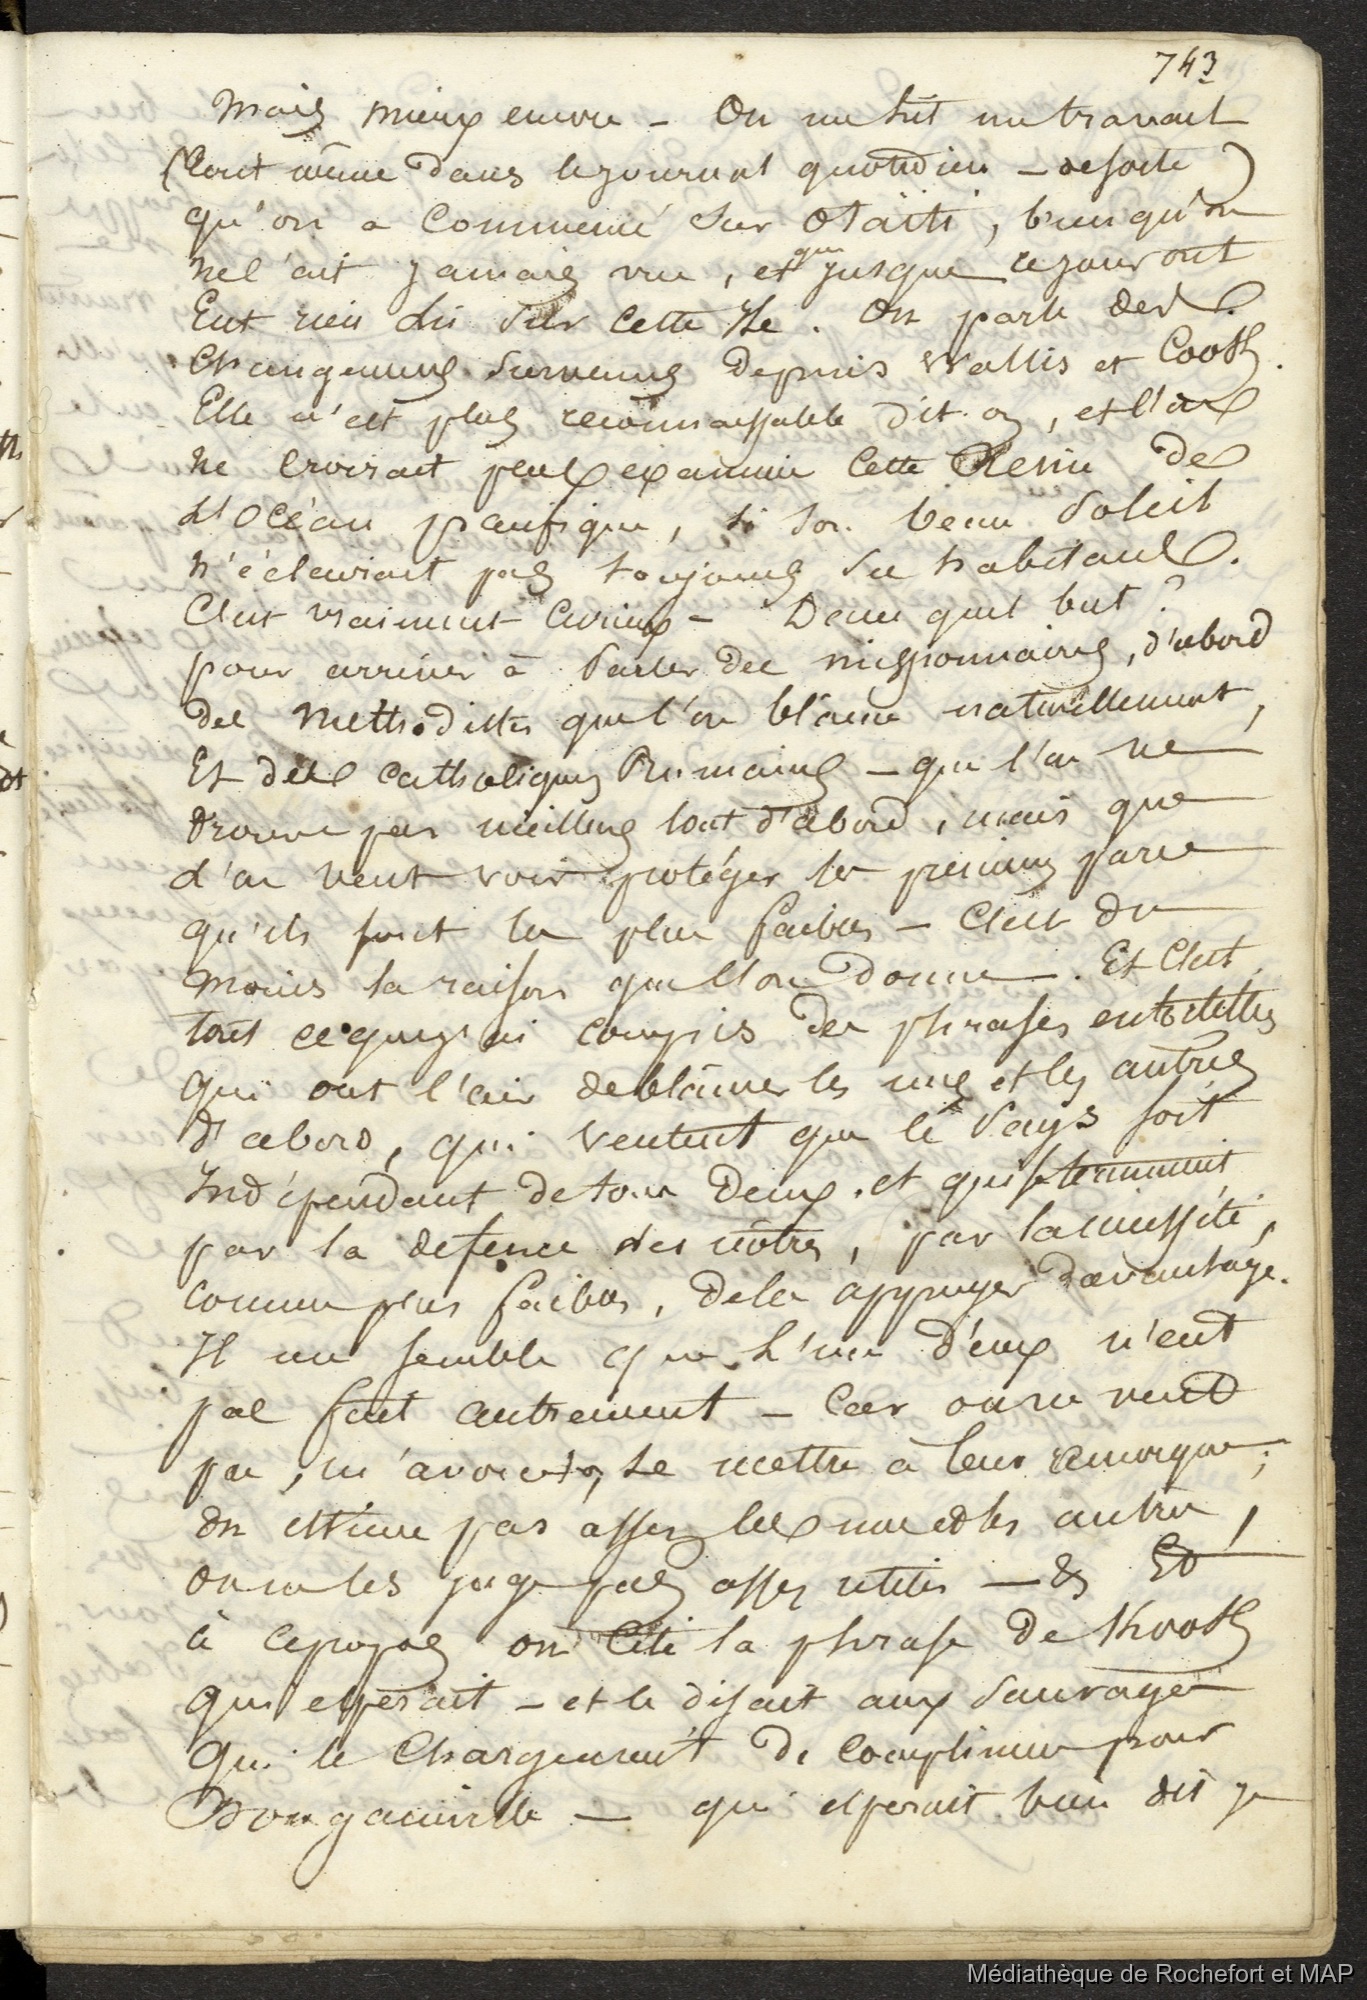 743
Mais mieux encore - On me lut un travail
(tout même dans le journal quotidien - de sorte)
qu'on a commencé sur Otaïti, bien qu'on
ne l'ait jamais vue, et que jusque ce jour ont
Eut rien dit sur cette Ile. On parle des
changemens survenus depuis Wallis et Cook.
Elle n'est plus reconnaissable dit on, et l'on
ne croirait plus examiner cette Reine de
L'Océan pacifique, si son beau Soleil
n'éclairait pas toujours ses habitans.
C'est vraiment curieux - Dans quel but ?
pour arriver à parler des missionnaires, d'abord
des Méthodistes que l'on blâme naturellement,
Et des catholiques Romains - que l'on ne
trouve pas meilleurs tout d'abord, mais que
l'on veut voir protéger les premiers parce
qu'ils sont les plus faibles - C'est du
moins la raison que l'on donne. Et c'est
tout ce que j'ai compris des phrases entortillées
qui ont l'air de blâmer les uns et les autres
d'abord, qui veulent que le Pays soit
Indépendant de tous deux, et qui se terminent
par la défence des nôtres, par la nécessité,
comme plus faibles, de les appuyer davantage.
Il me semble que l'un d'eux n'eut
pas fait autrement - Car on ne veut
pas, m'avoue-t-on, se mettre à leur remorque ;
on estime pas assez les uns et les autres,
on ne les juge pas assez utiles - & Et
à ce propos on cite la phrase de Kook
qui espérait - et le disait aux Sauvages
qui le chargeaient de complimens pour
Bougainville - qui espérait bien dis je